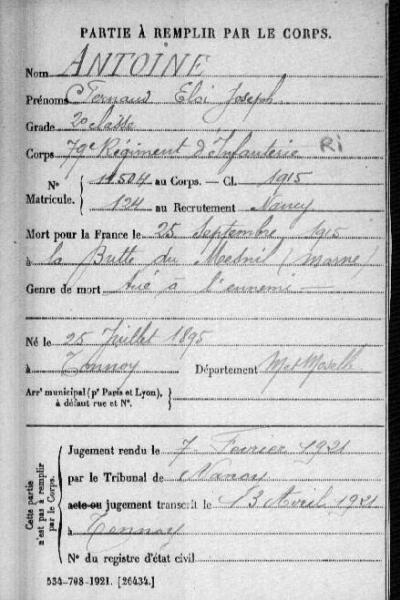 PARTIE À REMPLIR PAR LE CORPS.
Nom ANTOINE
Prénoms Fernand Eloi Joseph
Grade 2e classe
Corps 79e Régiment d'Infanterie RI
N° 11504 au Corps. — Cl. 1915
Matricule. 124 au Recrutement Nancy
Mort pour la France le 25 Septembre 1915
à la Butte du Mesnil (Marne)
Genre de mort tué à l'ennemi
Né le 25 Juillet 1895
à Tonnoy Département Mt Moselle
Arrt municipal (pr Paris et Lyon),
à défaut rue et N°.
Cette partie
n'est pas à remplir
par le Corps.
Jugement rendu le 7 Fevrier 1921
par le Tribunal de Nancy
acte ou jugement transcrit le 13 Avril 1921
à Tonnoy
N° du registre d'état civil
534-708-1921. [26434.]